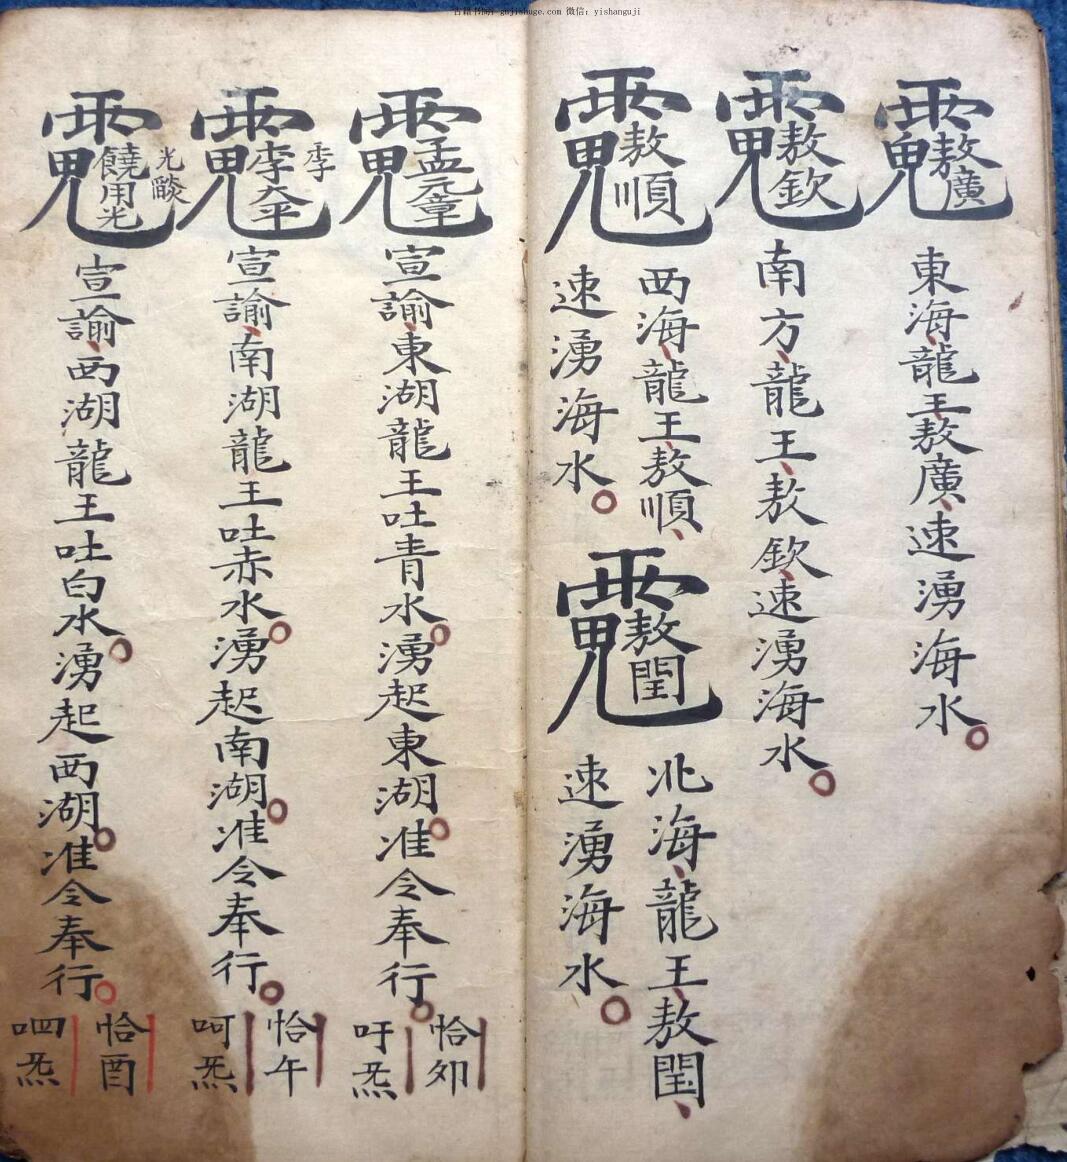 古籍书阁：gujishuge.com 微信：yishanguji
敖廣
東海龍王敖廣速湧海水
敖欽
南方龍王敖欽速湧海水
敖順
西海龍王敖順
速湧海水
敖閏
北海龍王敖閏
速湧海水
孟元章
宣諭東湖龍王吐青水湧起東湖准令奉行
恰卯
吁炁
李太平
李
宣諭南湖龍王吐赤水湧起南湖准令奉行
恰午
呵炁
饒用光
光
宣諭西湖龍王吐白水湧起西湖准令奉行
恰酉
呬炁